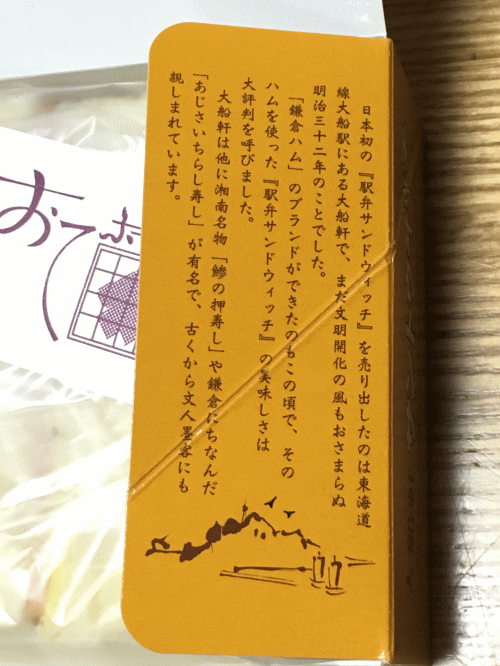 日本初の『駅弁サンドウィッチ』を売り出したのは東海道
線大船駅にある大船軒で、まだ文明開化の風もおさまらぬ
明治三十二年のことでした。
「鎌倉ハム」のブランドができたのもこの頃で、その
ハムを使った『駅弁サンドウィッチ』の美味しさは
大評判を呼びました。
大船軒は他に湘南名物「鯵の押寿し」や鎌倉にちなんだ
「あじさいちらし寿し」が有名で、古くから文人墨客にも
親しまれています。
おてふき